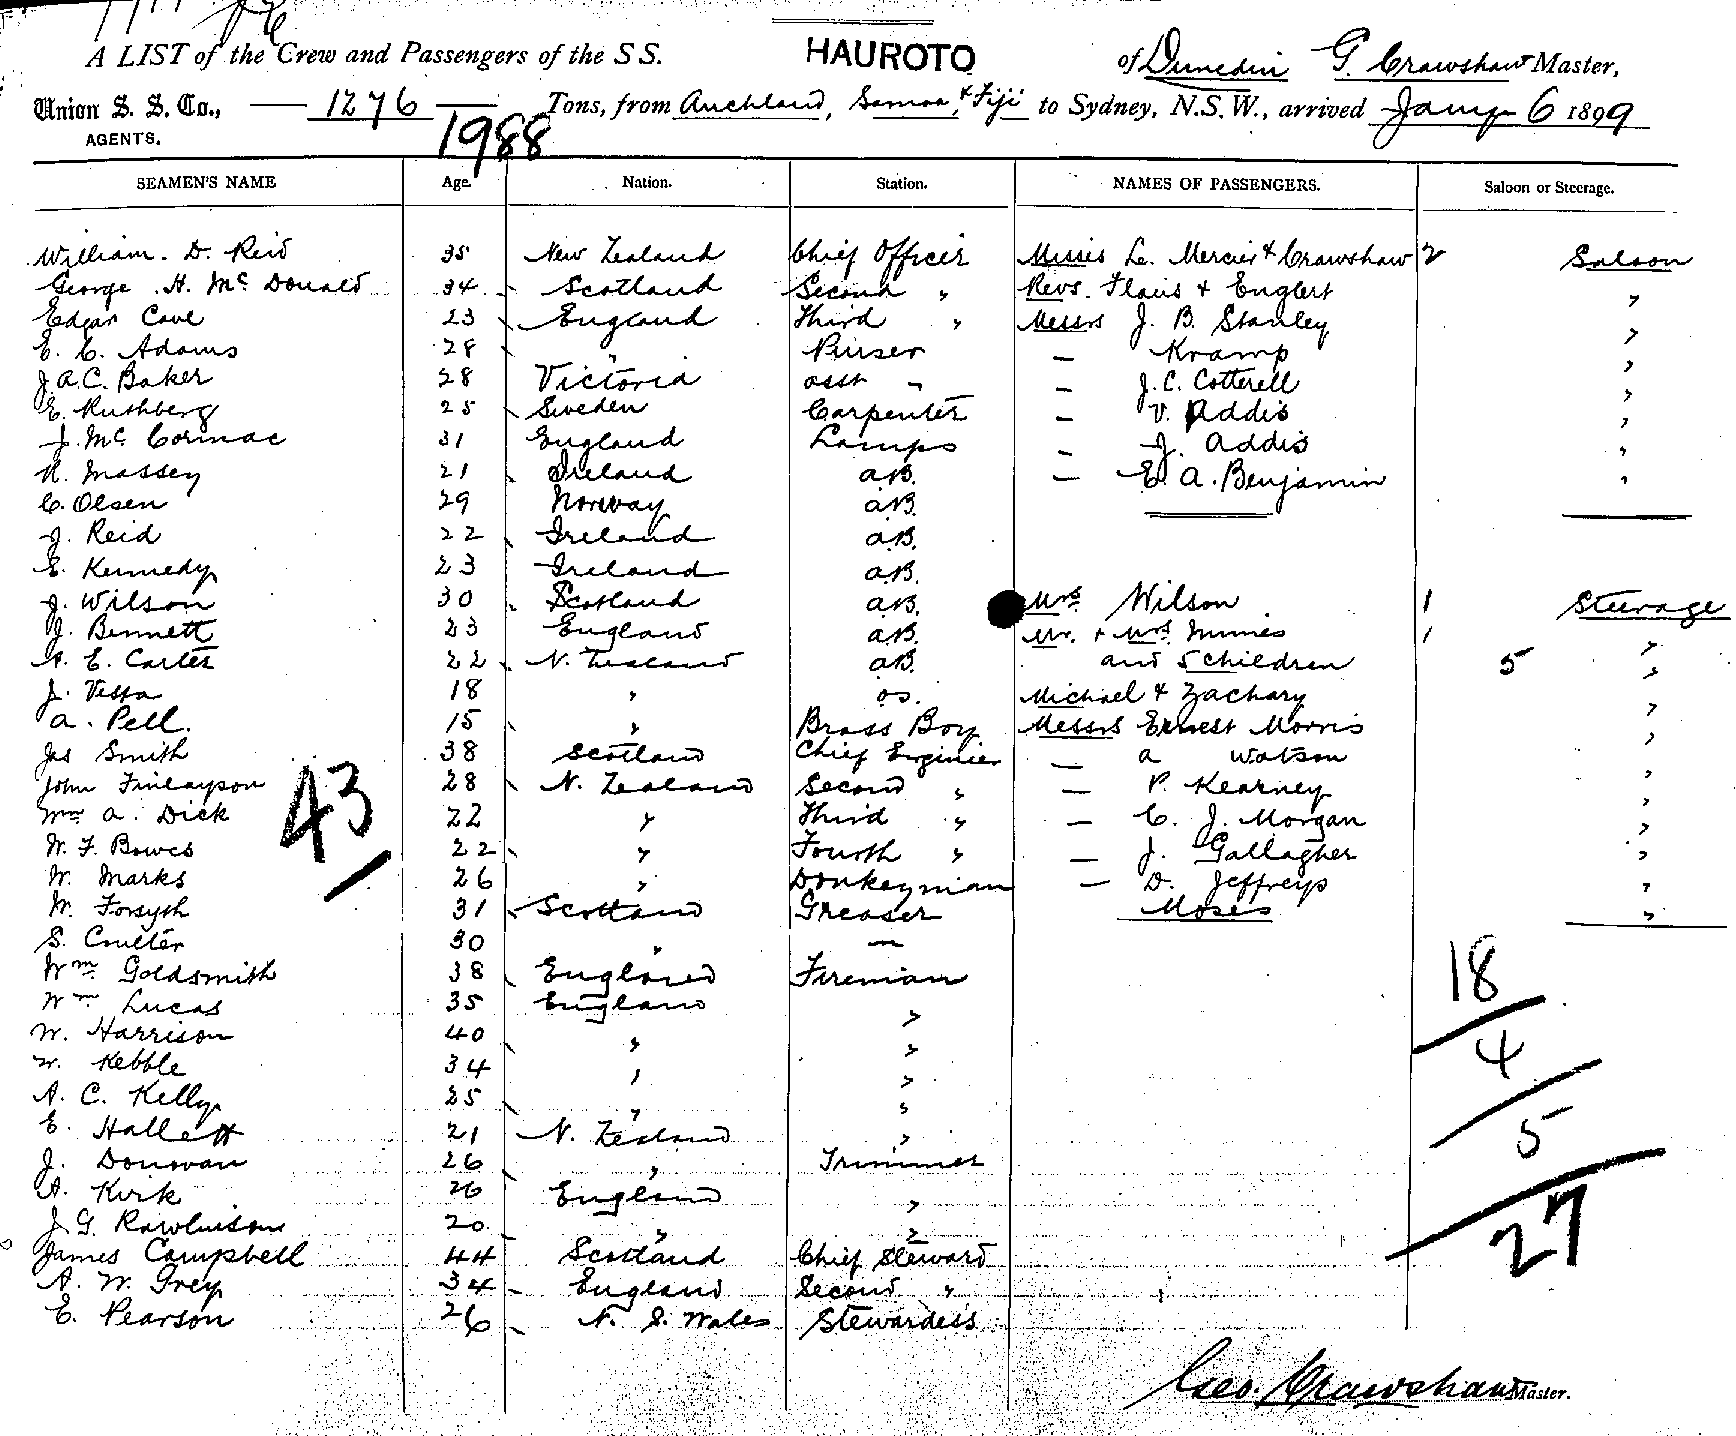 A LIST of the Crew and Passengers of the S S. HAUROTO of Dunedin G. Crawshaw Master,
Union S. S. Co., 1276 Tons, from Auckland, Samoa, & Fiji to Sydney, N.S.W., arrived Jany 6 1899
AGENTS. 1988
SEAMEN'S NAME Age. Nation. Station. NAMES OF PASSENGERS. Saloon or Steerage.
William. D. Reid 35 New Zealand Chief Officer Misses Le Mercier & Crawshaw 2 Saloon
George H. Mc Donald 34 Scotland Second " Revs. & Englert "
Edgar Cave 23 England Third " Messrs J. B. Stanley "
E. C. Adams 28 " Purser — Kramp "
J A.C. Baker 28 Victoria asst " — J. C. Cotterell "
E. Rushberg 25 Sweden Carpenter — V. Addis "
J. Mc Cormac 31 England Lamps — J. Addis "
R. Massey 21 Ireland A.B. — E. A. Benjamin "
C. Olsen 29 Norway A.B.
J. Reid 22 Ireland A.B.
E. Kennedy 23 Ireland A.B.
J. Wilson 30 Scotland A.B. Mrs Wilson 1 Steerage
J. Bennett 23 England A.B. Mr. & Mrs 1 "
A. E. Carter 22 N. Zealand A.B. and 5 children 5 "
J. Vespa 18 " OS. Michael & Zachary "
A. Pell. 15 " Brass Boy Messrs Ernest Morris "
Jas Smith 38 Scotland Chief Enginier — A Watson "
John Finlayson 28 N. Zealand Second " — P. Kearney "
Wm A. Dick 22 " Third " — C. J. Morgan "
43
W. F. Bowes 22 " Fourth " — J. Gallagher "
W. Marks 26 " Donkeyman — D. Jeffreys "
W. Forsyth 31 Scotland Greaser Moses "
S. Coulter 30 " —
Wm Goldsmith 38 England Fireman 18
Wm Lucas 35 England "
W. Harrison 40 " " 4
W. Kebble 34 " "
A. C. Kelly 25 " "
E. Hallett 21 N. Zealand " 5
J. Donovan 26 " Trimmer
A. Kirk 26 England " 27
J. G. Rawlinson 20 " "
James Campbell 44 Scotland Chief Steward
A. W. Grey 34 England Second "
E. Pearson 26 N. S. Wales Stewardess
Geo. Crawshaw Master.